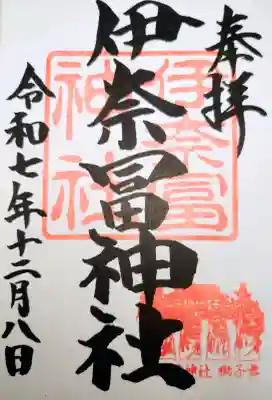 奉拝
伊奈冨
神社
伊奈冨神社
神社 獅子舞
令和七年十二月八日